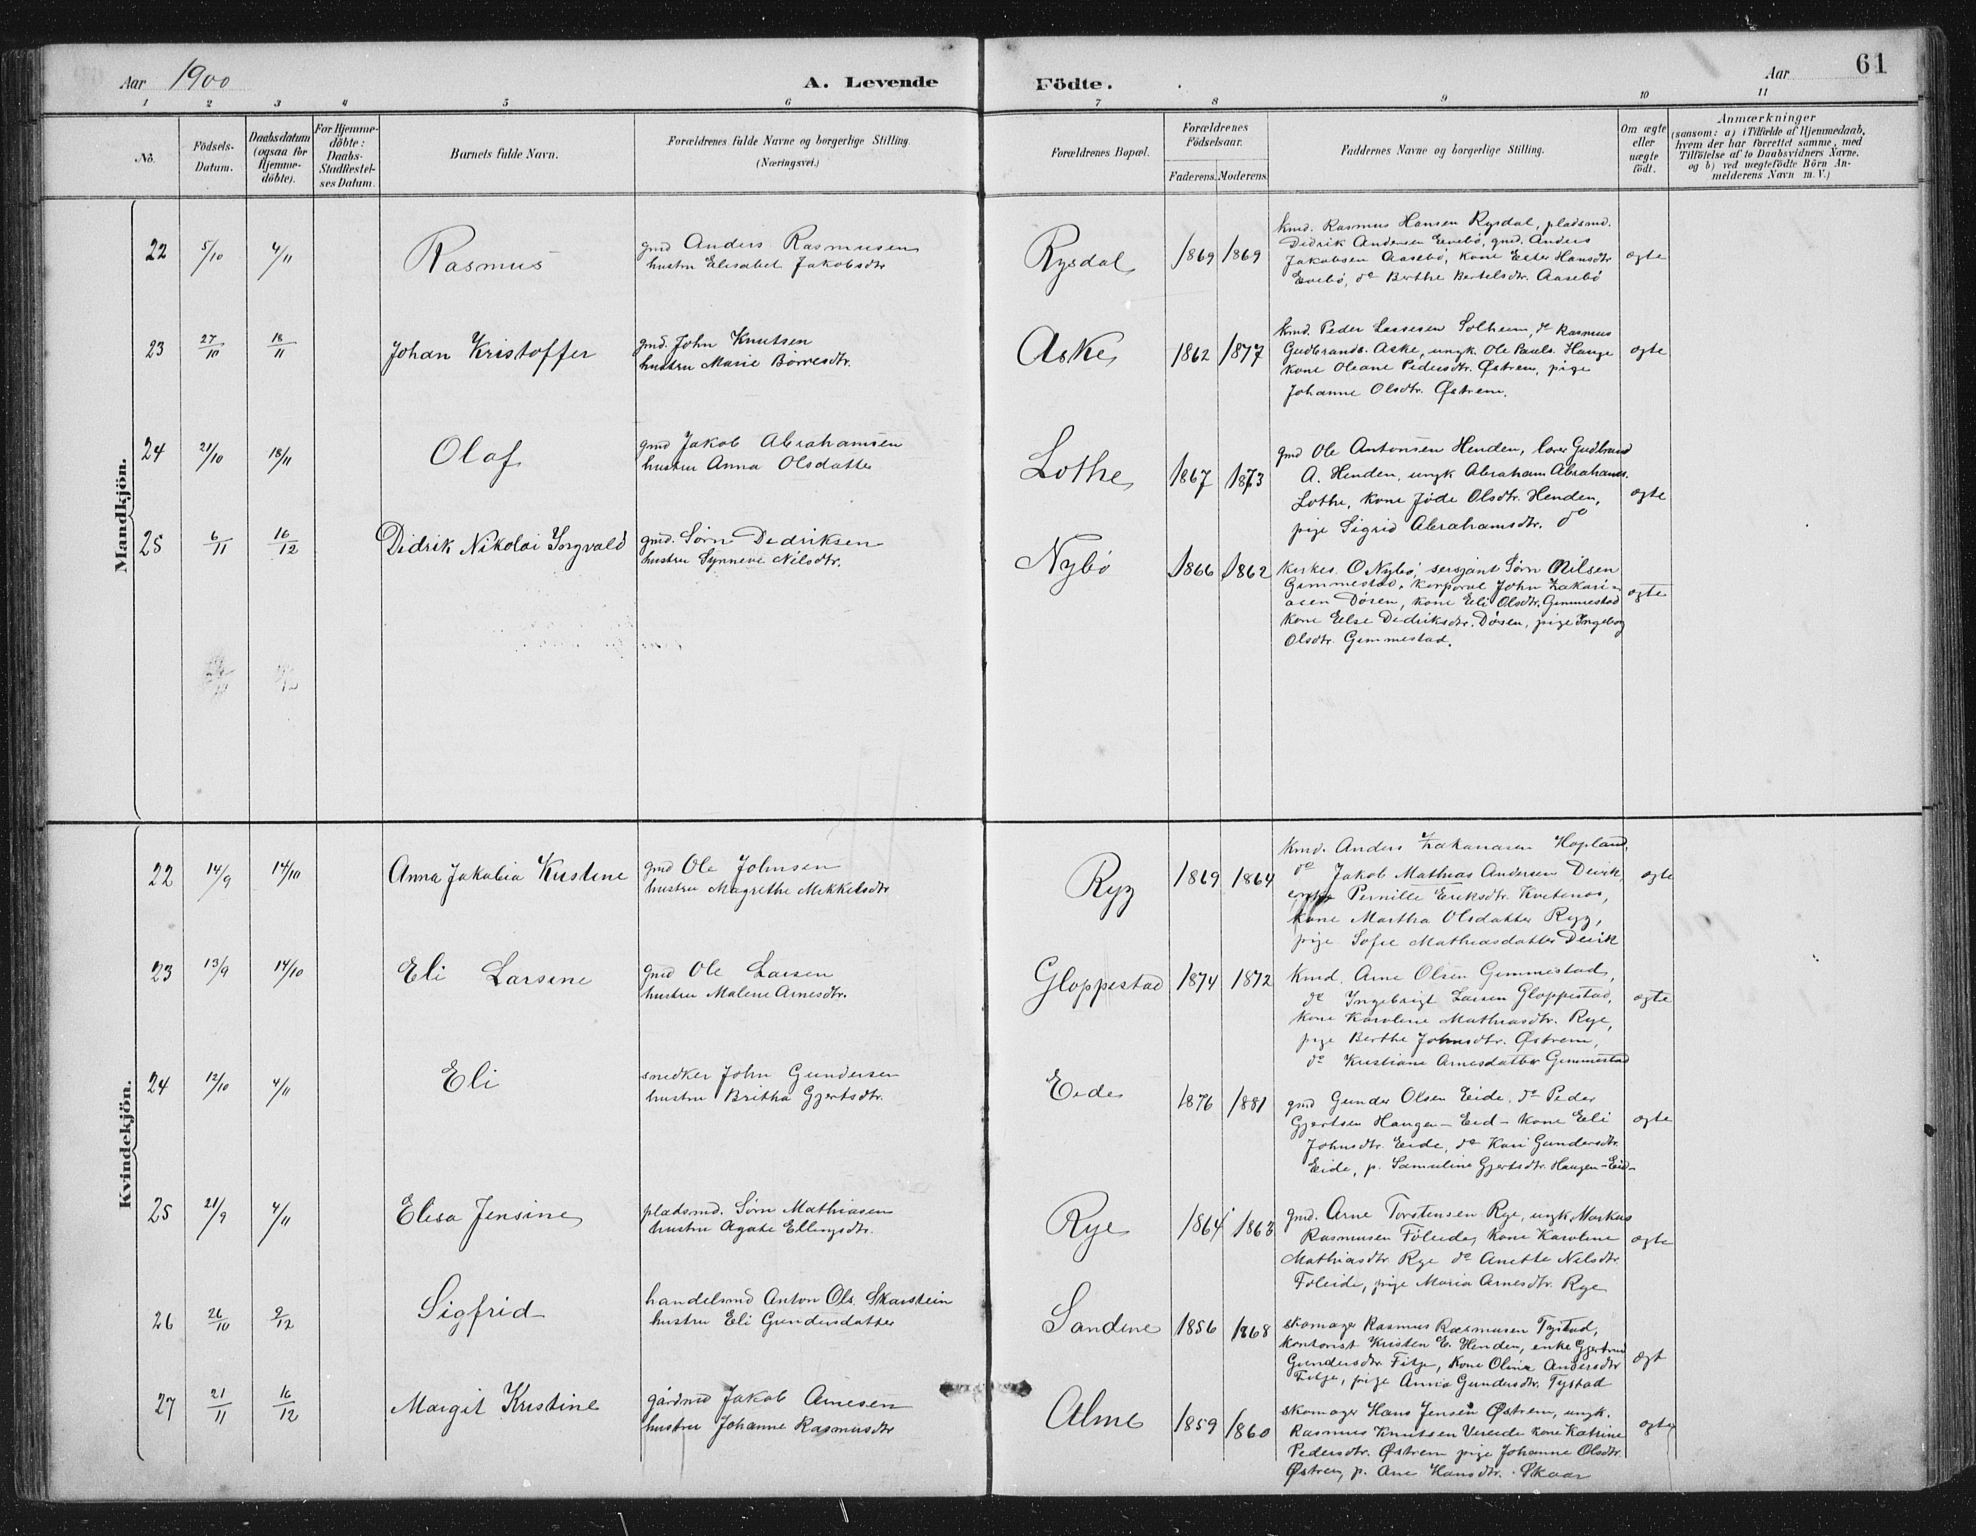 Aar 1900 A. Levende Födte. Aar 61
1 2 3 4 5 6 7 8 9 10 11
No. Födsels-Datum. Daabsdatum (ogsaa for Hjemme-döbte). For Hjemme-döbte: Daabs-Stadfæstel-ses Datum. Barnets fulde Navn. Forældrenes fulde Navne og borgerlige Stilling. (Næringsvei.) Forældrenes Bopæl. Forældrenes Födselsaar. Faderens. Moderens. Faddernes Navne og borgerlige Stilling. Om ægte eller uægte födt. Anmærkninger (saasom: a) i Tilfælde af Hjemmedaab, hvem der har forrettet samme, med Tilföielse af to Daabsvidners Navne, og b) ved uegtefödte Börn An-melderens Navn m. V.)
Mandkjön.
22 5/10 4/11 Rasmus gmd Anders Rasmusen
hustru Elisabet Jakobsdtr
Rysdal 1869 1869 kmd. Rasmus Hansen Rysdal, pladsmd.
Didrik Andersen Evebø, gmd. Anders
Jakobsen Aasebø, kone Ester Hansdtr
Evebø, do Berthe Bertelsdtr. Aasebø
ogte
23 27/10 18/11 Johan Kristoffer gmd. John Knutsen
hustru Marie Børresdtr.
Aske 1862 1877 kmd. Peder Lassesen Solheim, do Rasmus
Gudbrands. Aske, ungk. Ole Pauls. Hauge
kone Oleane Pedersdtr. Østrem, pige
Johanne Olsdtr. Østrem.
ogte
24 21/10 18/11 Olaf gmd Jakob Abrahamsen
hustru Anna Olsdatter
Lothe 1867 1873 gmd Ole Antonsen Henden, lærer Gudbrand
A. Henden, ungk Abraham Abrahams.
Lothe, kone Jøde Olsdtr. Henden,
pige Sigrid Abrahamsdtr. do
ogte
25 6/11 16/12 Didrik Nikolai Torgvald gmd. Sørn Dedriksen
hustru Synneve Nilsdtr.
Nybø 1866 1862 kirkes. O Nybø, sersjant Sørn Nilsen
Gimmestad, korporal John Zakari-
asen Døsen, kone Eli Olsdtr. Gimmestad
kone Else Dedriksdtr. Døsen, pige Ingeborg
Olsdtr. Gimmestad.
ogte
Kvindekjön.
22 14/9 14/10 Anna Jakobia Kristine gmd Ole Johnsen
hustru Magrethe Mikkelsdtr
Ryg 1869 1864 kmd. Anders Zakariasen Hopland,
do Jakob Mathias Andersen Devik,
enke Pernille Eriksdtr. Kvitenes,
kone Martha Olsdatter Ryg,
pige Sofie Mathiasdatter Devik
ogte
23 13/9 14/10 Eli Larsine gmd Ole Larsen
hustru Malene Arnesdtr.
Gloppestad 1874 1872 Kmd. Arne Olsen Gimmestad,
do Ingebrigt Larsen Gloppestad,
kone Karoline Mathiasdtr. Rye,
pige Berthe Johnsdtr. Østrem,
do Kristiane Arnesdatter Gimmestad
ogte
24 12/10 4/11 Eli snedker John Gundersen
hustru Britha Gjertsdtr.
Eide 1876 1881 gmd Gunder Olsen Eide, do Peder
Gjertsen Haugen - Eid - kone Eli
Johnsdtr. Eide, do Kari Gundersdtr.
Eide, p. Samuline Gjertsdtr. Haugen - Eid -
ogte
25 21/9 4/11 Elisa Jensine pladsmd. Sørn Mathiasen
hustru Agate Ellingsdtr.
Rye 1864 1863 gmd. Arne Torstensen Rye, ungk. Markus
Rasmusen Føleide, kone Karoline
Mathiasdtr. Rye do Anette Nilsdtr.
Føleide, pige Maria Arnesdtr. Rye
ogte
26 26/10 2/12 Sigfrid handelsmd Anton Ols. Skarstein
hustru Eli Gundersdatter
Sandene 1856 1868 skomager Rasmus Rasmusen Tystad,
kontorist Kristen E. Henden, enke Gjertrud
Gundersdtr. Fitje, kone Olina Andersdtr
Fitje, pige Anna Gundersdtr. Tystad
ogt
27 21/11 16/12 Margit Kristine gårdmd Jakob Arnesen
hustru Johanne Rasmusdtr
Alme 1859 1860 skomager Hans Jensen Østrem, ungk.
Rasmus Knutsen Vereide kone Katrine
Pedersdtr. Østrem pige Johanne Olsdtr.
Østrem, p. Ane Hansdtr. Skaar
ogte